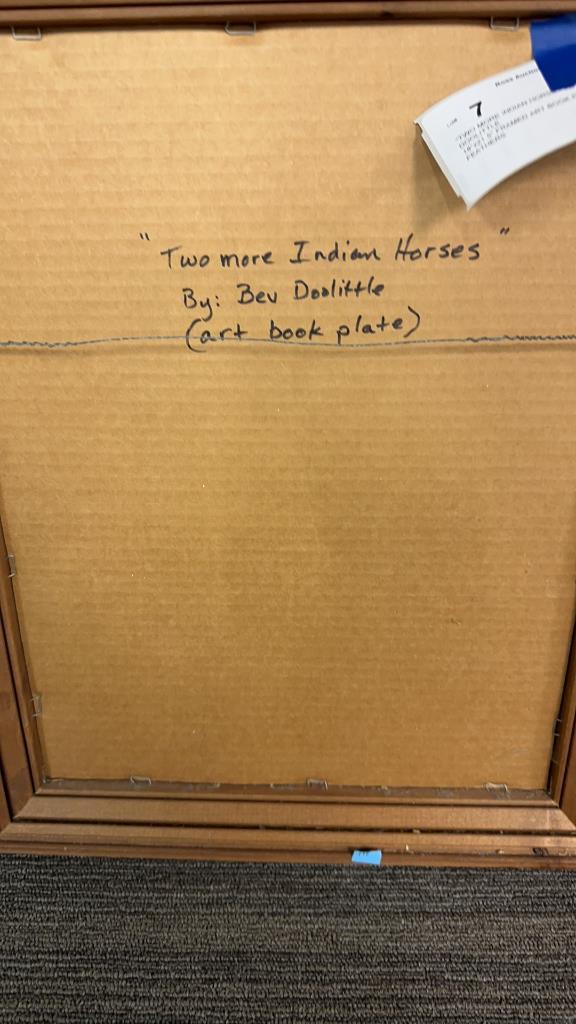 Ross Auction
7
"TWO MORE INDIAN HORS
DOOLITTLE
FRAMED ART BOOK P
FEATHERS
"Two more Indian Horses"
By: Bev Doolittle
(art book plate)